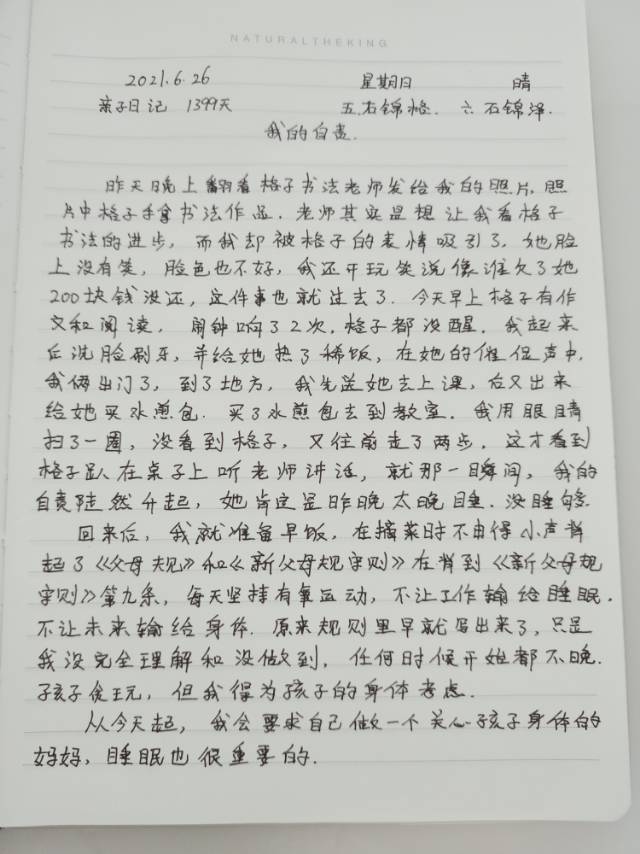 NATURALTHEKING
2021.6.26 星期日 晴
亲子日记 1399天 五.石锦格. 六石锦泽.
我的自责.
昨天晚上翻看格子书法老师发给我的照片,照
片中格子手拿书法作品.老师其实是想让我看格子
书法的进步,而我却被格子的表情吸引了,她脸
上没有笑,脸色也不好,我还开玩笑说像谁欠了她
200块钱没还,这件事也就过去了.今天早上格子有作
文和阅读,闹钟响了2次.格子都没醒.我起来
后洗脸刷牙,并给她热了稀饭,在她的催促声中.
我俩出门了,到了地方,我先送她去上课,后又出来
给她买水煎包.买了水煎包去到教室.我用眼睛
扫了一圈,没看到格子,又往前走了两步.这才看到
格子趴在桌子上听老师讲话,就那一瞬间,我的
自责陡然升起,她肯定是昨晚太晚睡.没睡够.
回来后,我就准备早饭,在摘菜时不由得小声背
起了《父母规》和《新父母规守则》在背到《新父母规
守则》第九条,每天坚持有氧运动,不让工作输给睡眠.
不让未来输给身体.原来规则里早就写出来了,只是
我没完全理解和没做到,任何时候开始都不晚.
孩子贪玩,但我得为孩子的身体考虑.
从今天起,我会要求自己做一个关心孩子身体的
好妈,睡眠也很重要的.